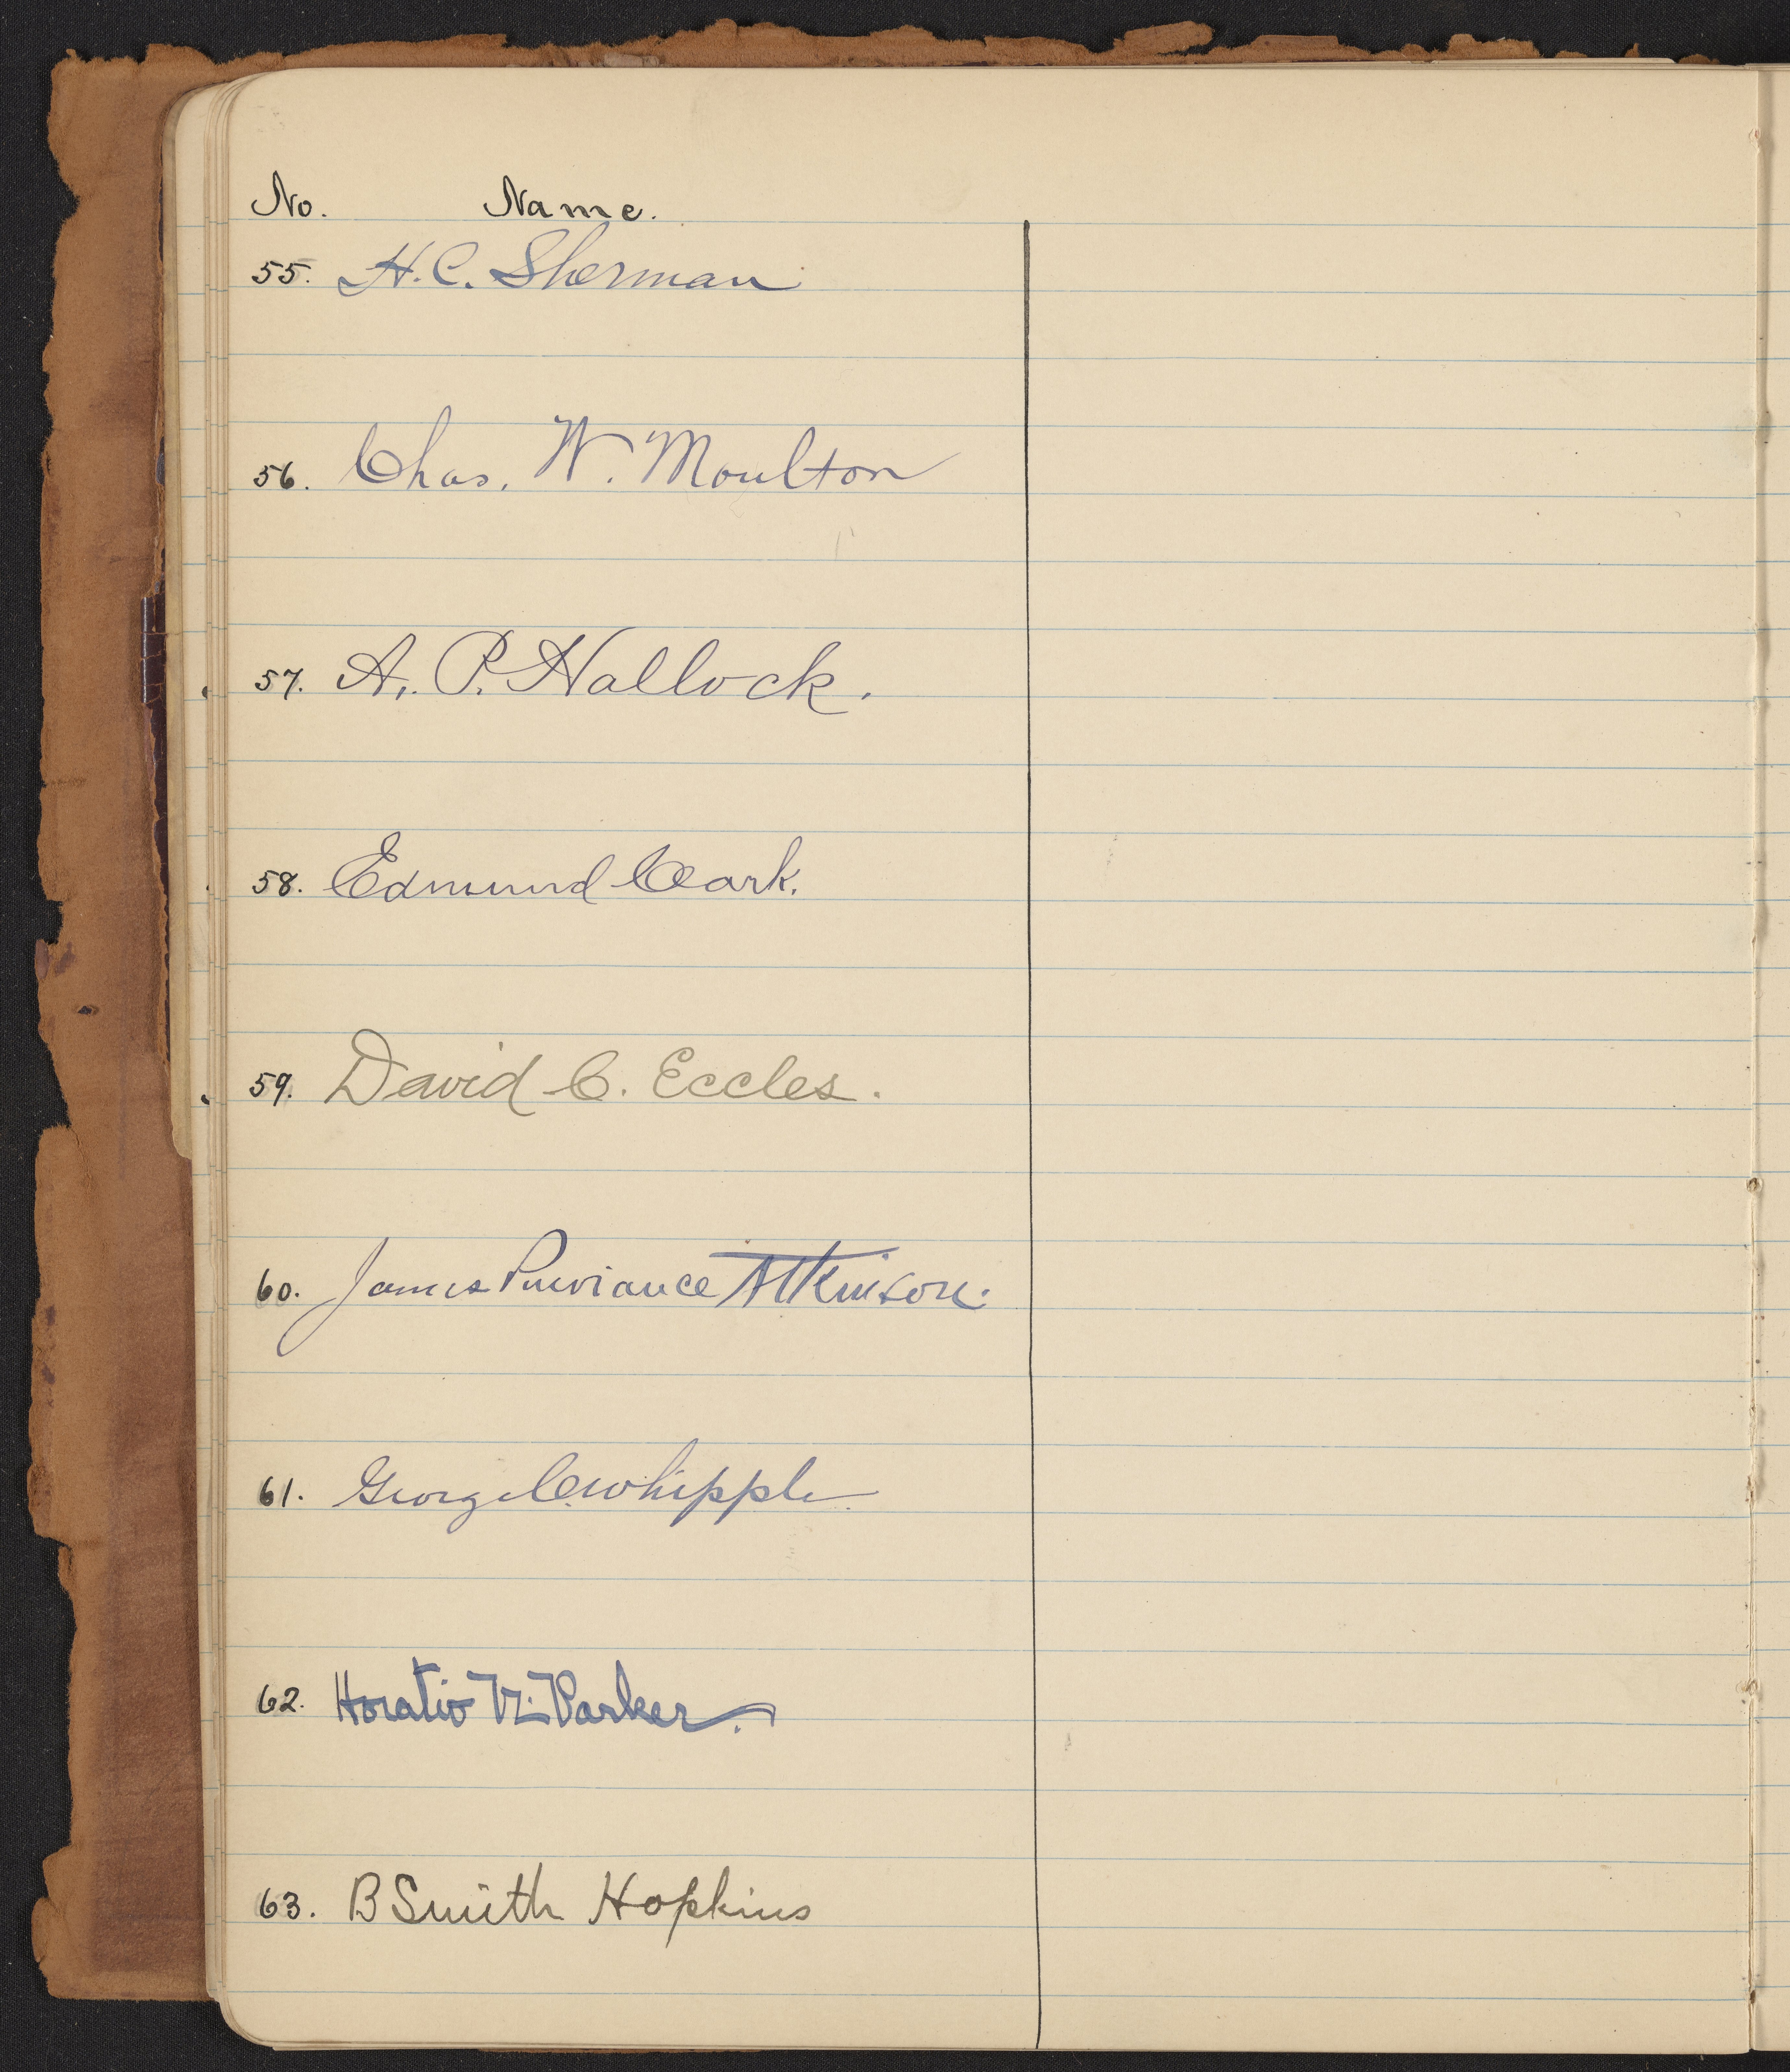 No. Name.
55. H. C. Sherman
56. Chas. W. Moulton
57. A. P. Hallock.
58. Edmund Clark.
59. David C. Eccles.
60. James Purviance Atkinson.
61. George C. Whipple.
62. Horatio N. Parker.
63. B Smith Hopkins